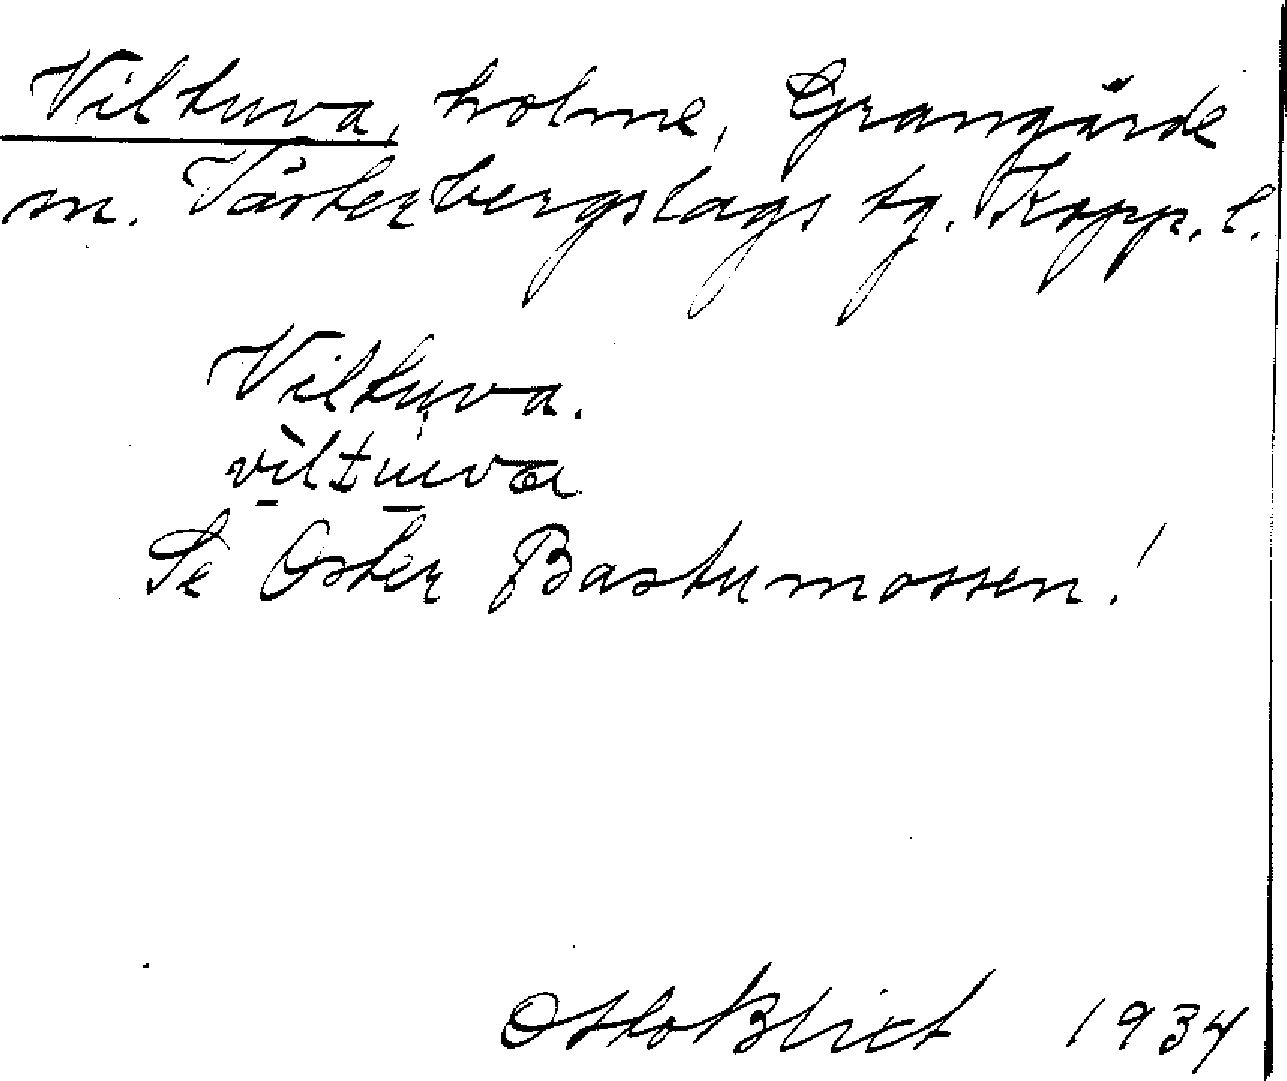 Viltuva, holme, Grangärde
sn. Västerbergslags tg. Kopp. l.
Viltuva.
viltuva
Se Öster Bastumossen!
Otto Blixt 1934